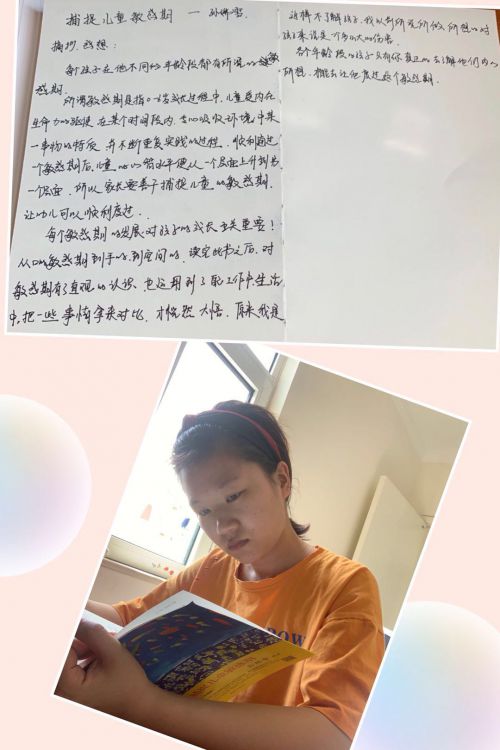 捕捉儿童敏感期 — 孙瑞雪
摘抄、感想:
每个孩子在他不同的年龄段都有所说的
敏感期.
所谓敏感期是指0-6岁成长过程中,儿童受内在
生命力的驱使,在某个时间段内,专心吸收环境中某
一事物的特质,并不断重复实践的过程。顺利通过
一个敏感期后,儿童的心智水平便从一个层面上升到另
一个层面。所以家长要善于捕捉儿童的敏感期.
让幼儿可以顺利度过..
每个敏感期的发展对孩子的成长至关重要!
从口的敏感期到手的,到空间的,读完此书之后,对
敏感期有了直观的认识,也运用到了职工作中生活
中,把一些事情拿来对比,才恍然大悟,原来我是
这样不了解孩子,我以前所说所做,所想的对
孩子来说是个多大的伤害.
各个年龄段的孩子只有你真正的去了解他们内心
所想,才能去让他度过这个敏感期.